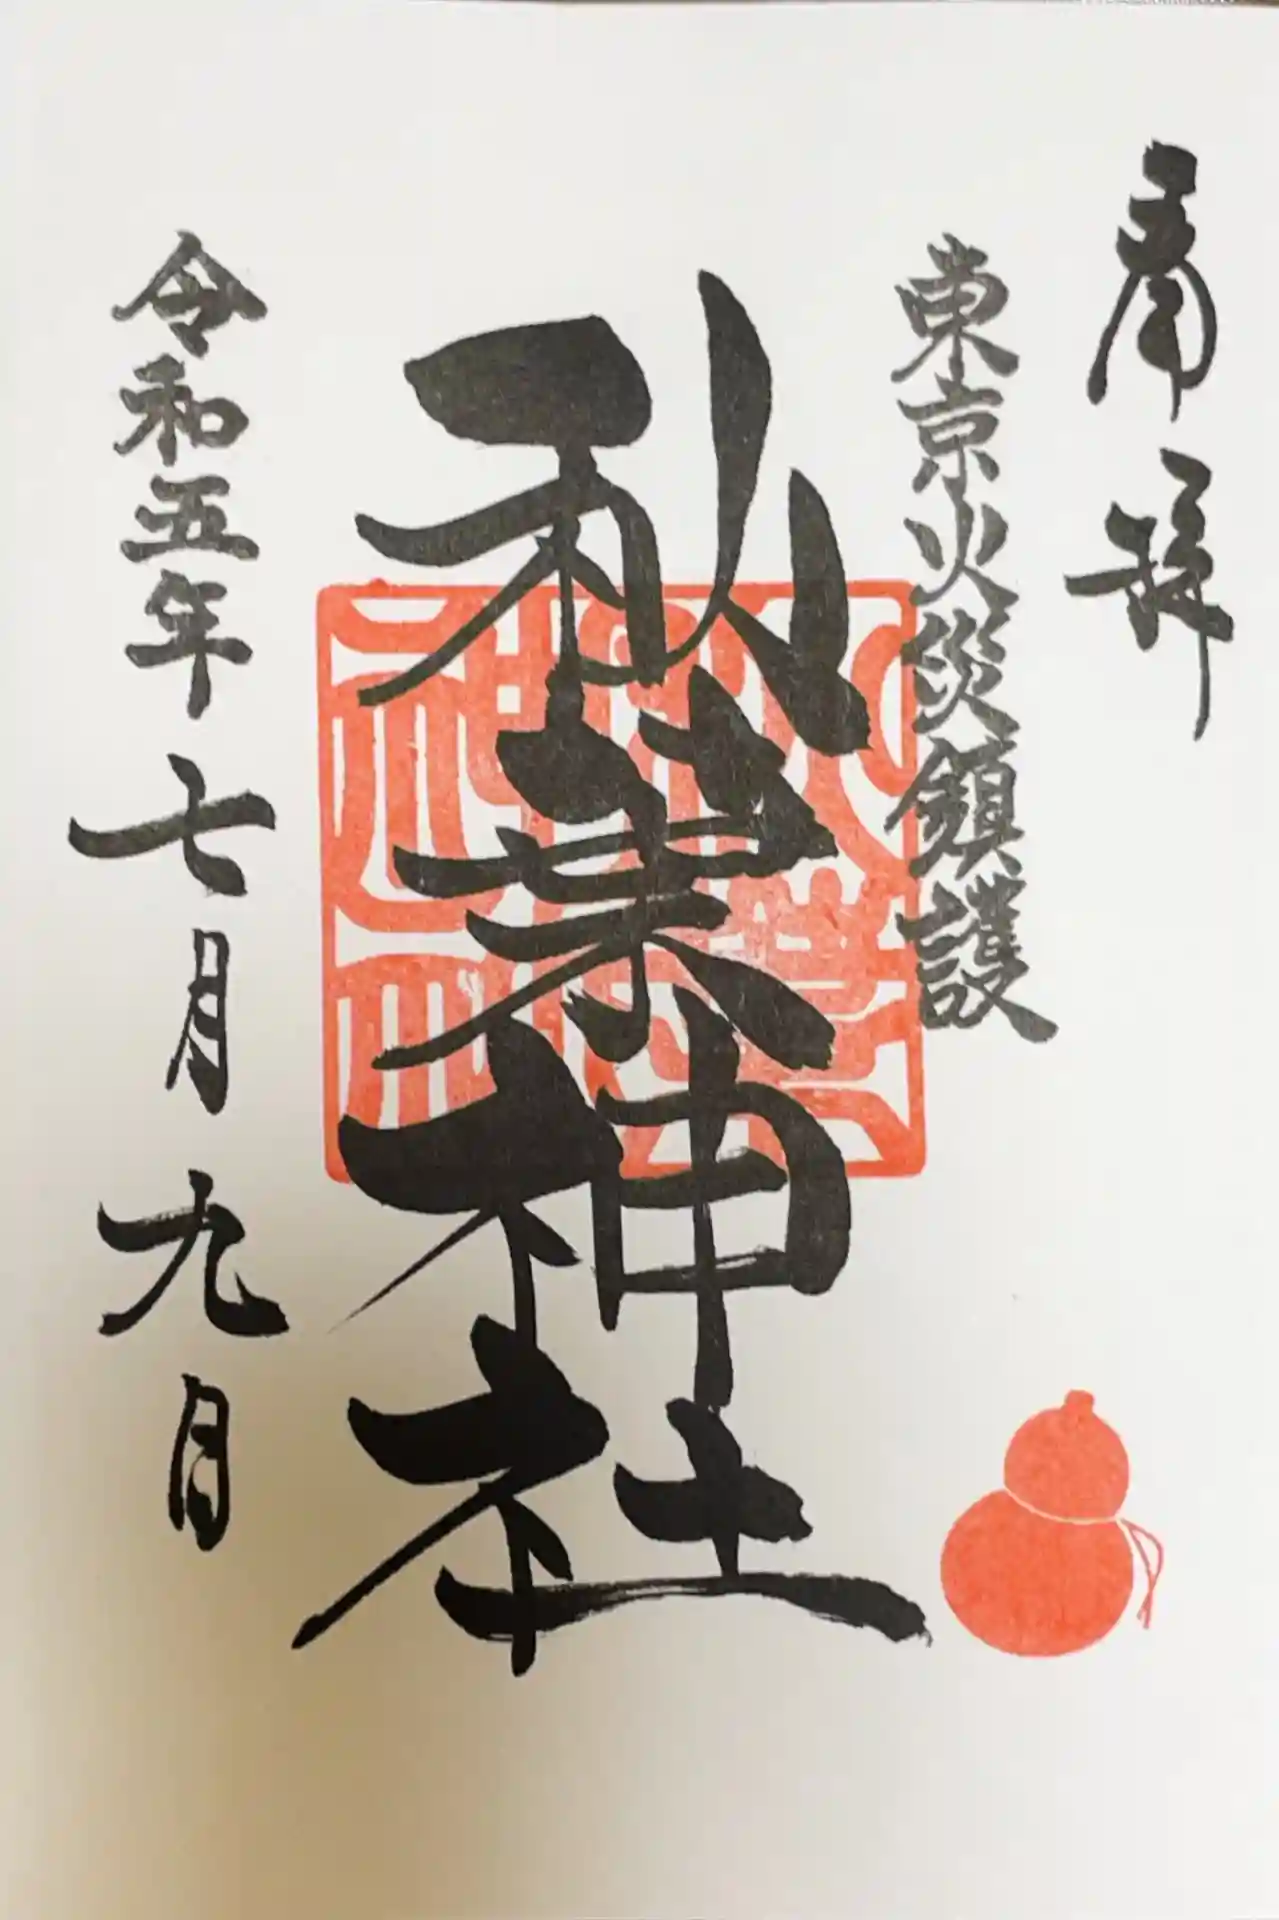 奉拝
東京火災鎮護
秋葉神社
秋葉神社
令和五年七月九日